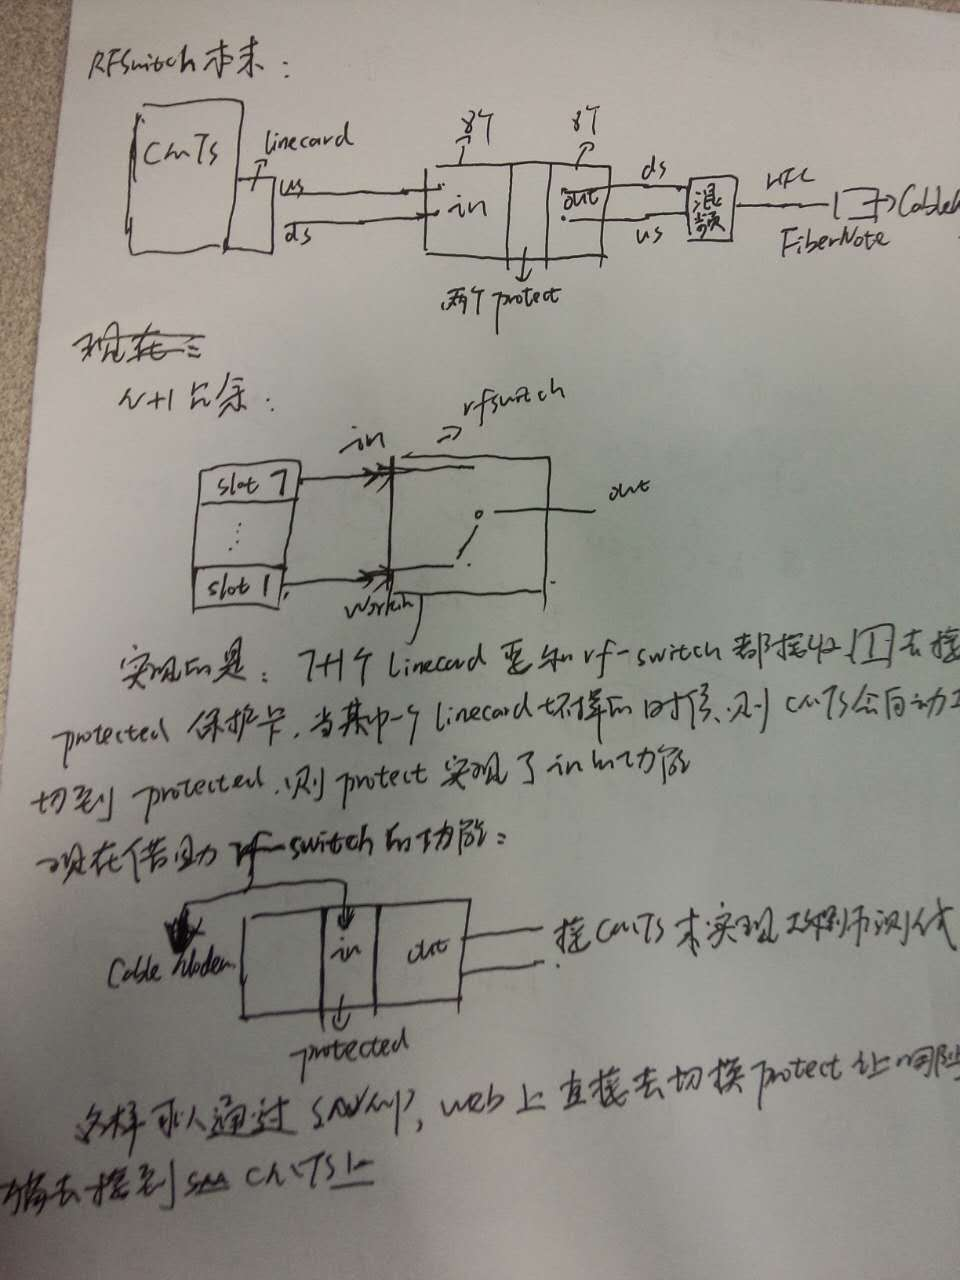 RFSwitch 本来：
8个 8个
CMTs linecard us ds in out ds us 混频 HFC FiberNote
两个 protect
现在：
N+1 冗余：
in rfswitch
slot 7
out
slot 1
workin
实现的是：7+1个 linecard 要和 rf-switch 都接好 1 去接
protected 保护卡，当其中一个 linecard 坏掉的时候，则 CMTS会自动
切到 protected，则 protect 实现了 in 的功能
现在借助 rf-switch 的功能：
Cable Modem in out 接CMTS 来实现
protected
这样可以通过 SNMP，web上直接去切换protect让
去接到 CMTS上